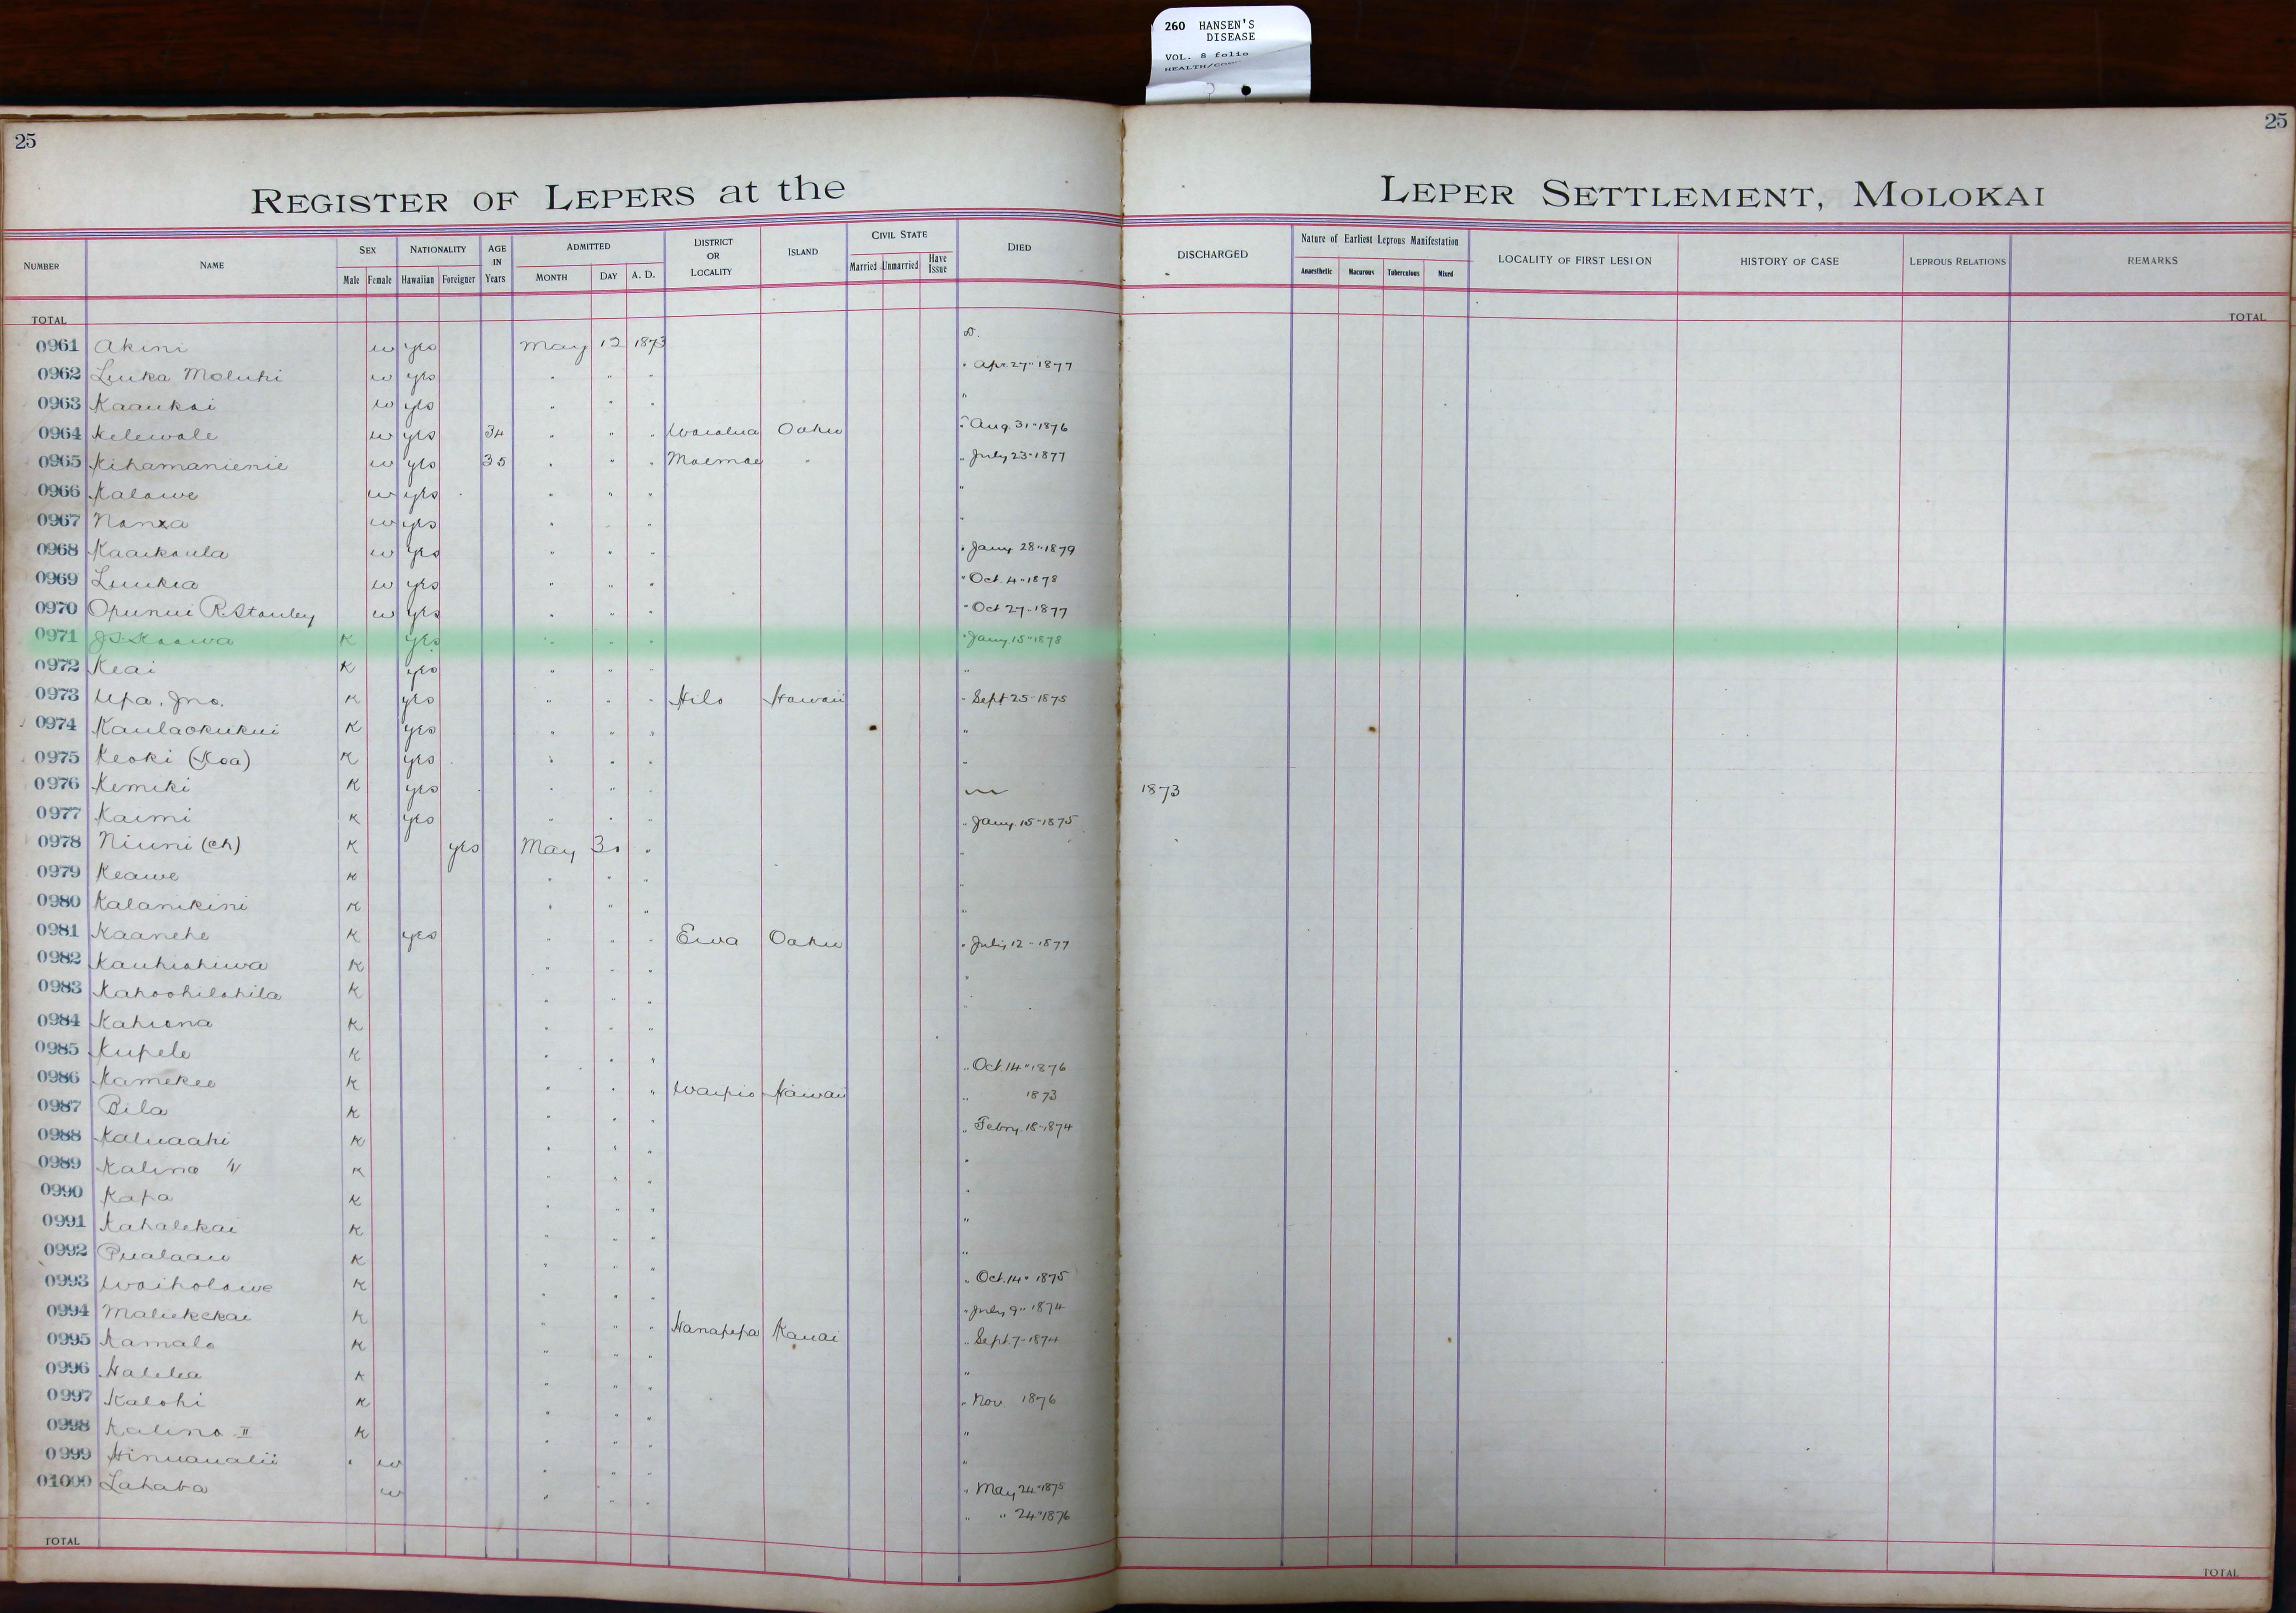 260 HANSEN'S
DISEASE
VOL. 8 folio
25
25
REGISTER OF LEPERS at the LEPER SETTLEMENT, MOLOKAI
NUMBER NAME SEX NATIONALITY AGE IN Years ADMITTED DISTRICT OR LOCALITY ISLAND CIVIL STATE DIED DISCHARGED Nature of Earliest Leprous Manifestation LOCALITY OF FIRST LESION HISTORY OF CASE LEPROUS RELATIONS REMARKS
Male Female Hawaiian Foreigner MONTH DAY A. D. Married Unmarried Have Issue Anaesthetic Macurous Tuberculous Mixed
TOTAL TOTAL
0961 Akini w yes May 12 1873 D.
0962 Luika Moluhi w yes " " " " Apr. 27" 1877
0963 Kaaukai w yes " " " "
0964 Kelewale w yes 34 " " " Waialua Oahu " Aug. 31" 1876
0965 Kihamanienie w yes 35 " " " Moemoe " " July 23" 1877
0966 Kalawe w yes " " " "
0967 w yes " " " "
0968 Kaaikaula w yes " " " " Jany 28" 1879
0969 Luukia w yes " " " " Oct. 4" 1878
0970 Opunui R. Stanley w yes " " " " Oct 27" 1877
0971 K yes " " " " Jany 15" 1878
0972 Keai K yes " " " "
0973 Upa, Jno. K yes " " " Hilo Hawaii " Sept 25" 1875
0974 Kaulaokukui K yes " " " "
0975 Keoki (Koa) K yes " " " "
0976 Kemiki K yes " " " 1873
0977 Kaimi K yes " " " " Jany. 15" 1875
0978 Niuni (Ch) K yes May 30 " "
0979 Keawe K " " " "
0980 Kalanikini K " " " "
0981 Kaanehe K yes " " " Ewa Oahu " July 12" 1877
0982 Kauhiohiwa K " " " "
0983 Kahoohilohila K " " " "
0984 Kahiona K " " "
0985 Kupele K " " " " Oct. 14" 1876
0986 Kamekeo K " " " Waipio Hawaii " 1873
0987 Bila K " " " " Febry. 18" 1874
0988 Kaluaahi K " " " "
0989 Kalino K " " " "
0990 Kapa K " " " "
0991 Kahalekai K " " " "
0992 Pualaau K " " " " Oct. 14" 1875
0993 Waiholowe K " " " " July 9" 1874
0994 Maliekekai K " " " Hanapepa Kauai " Sept. 7" 1874
0995 Kamalo K " " " "
0996 Halelea K " " " " Nov. 1876
0997 Kalohi K " " " "
0998 Kalino II K " " " "
0999 Hinuaualii w " " " " May 24" 1875
01000 Lahaba w " " " " " 24" 1876
TOTAL TOTAL